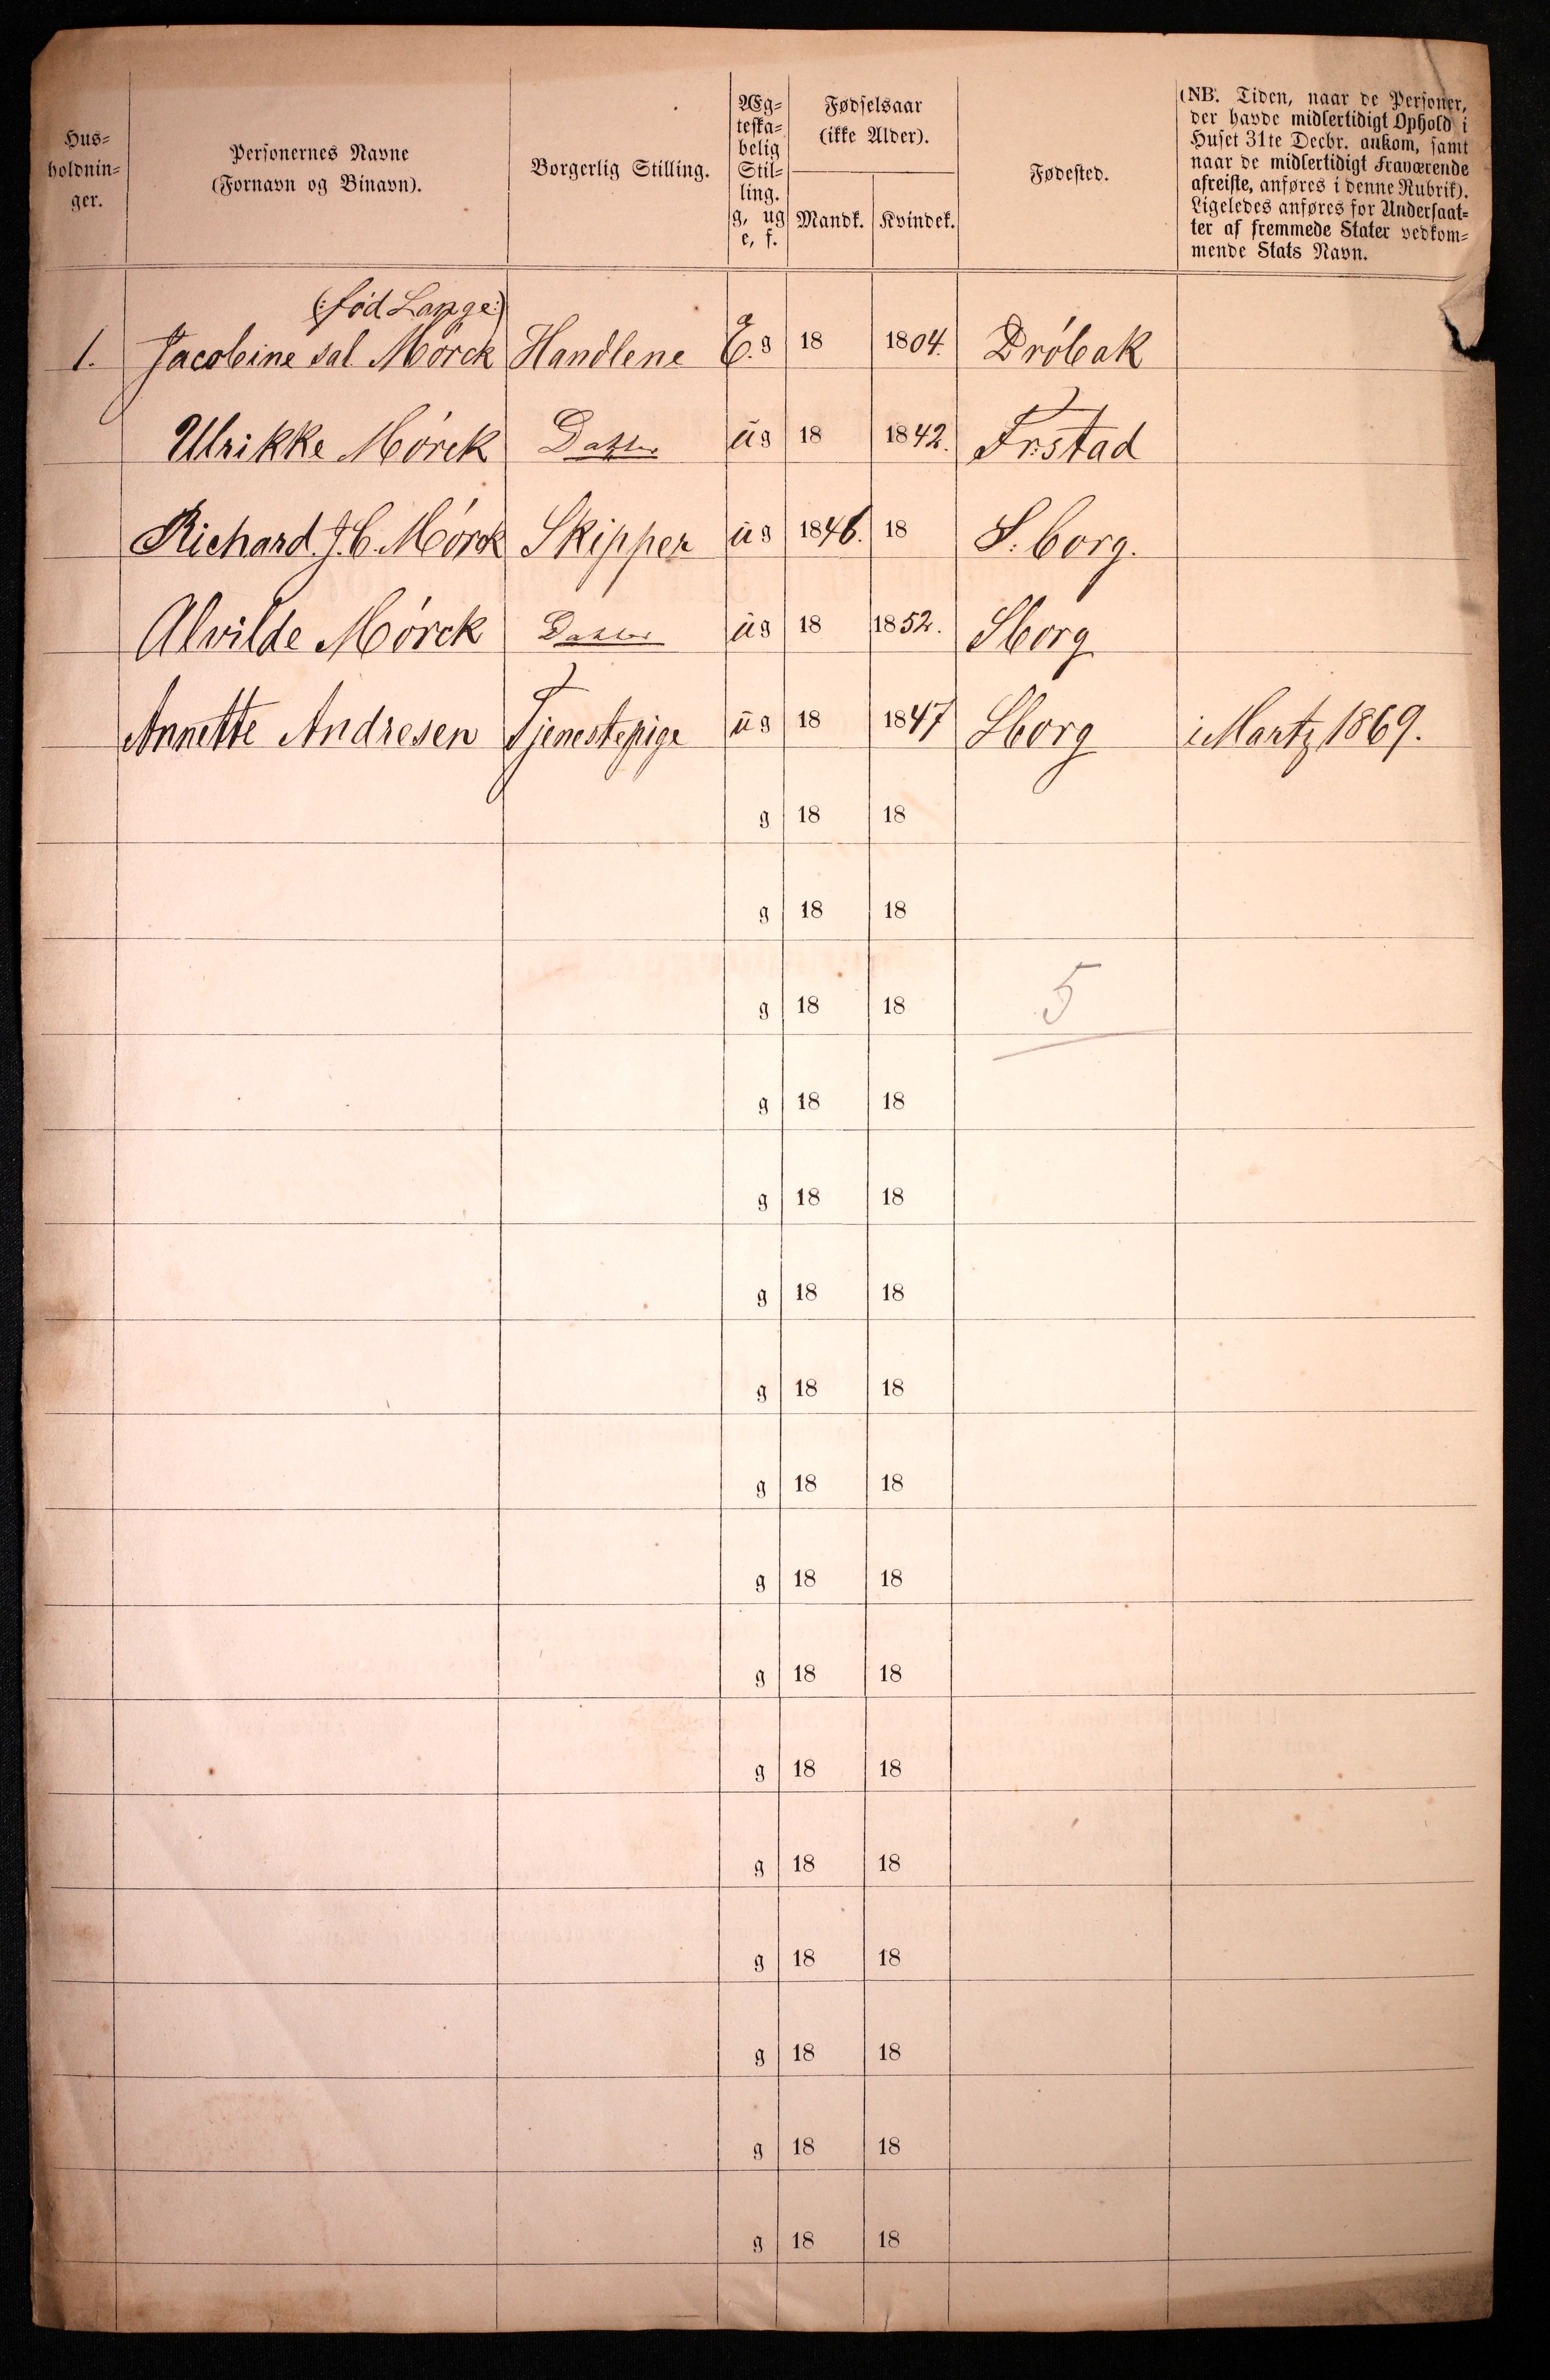 Hus=
holdnin=
ger.
Personernes Navne
(Fornavn og Binavn).
Borgerlig Stilling.
Æg=
teska=
belig
Stil=
ling.
g, ug
e, f.
Fødselsaar
(ikke Alder).
Mandk. Kvindek.
Fødested.
(NB. Tiden, naar de Personer,
der havde midlertidigt Ophold i
Huset 31te Decbr. ankom, samt
naar de midlertidigt Fraværende
afreiste, anføres i denne Rubrik).
Ligeledes anføres for Undersaat=
ter af fremmede Stater vedkom=
mende Stats Navn.
(: fód Lange :)
1. Jacobine sal. Mórck Handlene E.g 18 1804. Dróbak
Ulrikke Mórck Datter ūg 18 1842. Fr:stad
Richard J. C. Mórck Skipper ūg 1846. 18 S: borg.
Alvilde Mórck Datter ūg 18 1852. Sborg
Annette Andresen Tjenestepige ūg 18 1847 Sborg i Martz 1869.
g 18 18
g 18 18
g 18 18 5
g 18 18
g 18 18
g 18 18
g 18 18
g 18 18
g 18 18
g 18 18
g 18 18
g 18 18
g 18 18
g 18 18
g 18 18
g 18 18